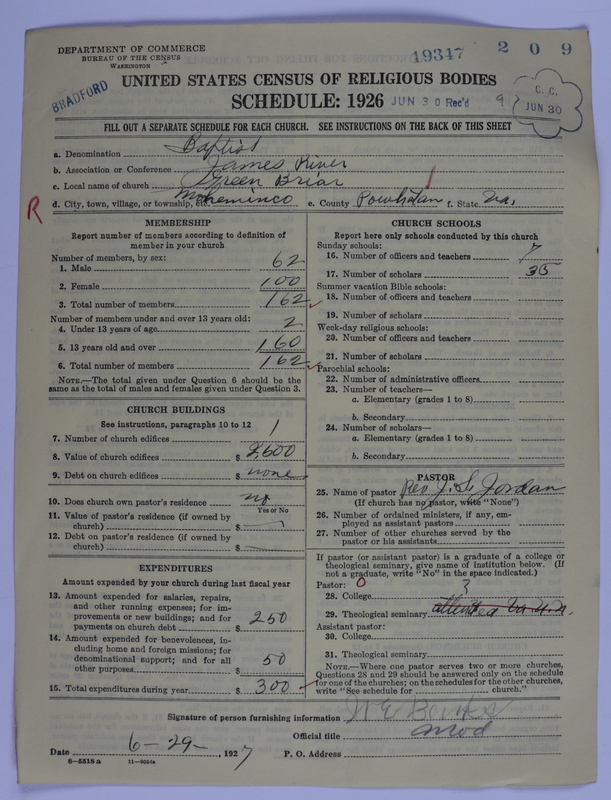 DEPARTMENT OF COMMERCE
BUREAU OF THE CENSUS
WASHINGTON
19347
2 0 9
BRADFORD
UNITED STATES CENSUS OF RELIGIOUS BODIES
SCHEDULE: 1926
JUN 30 Rec'd
9
C. C.
JUN 30
FILL OUT A SEPARATE SCHEDULE FOR EACH CHURCH. SEE INSTRUCTIONS ON THE BACK OF THIS SHEET
a. Denomination Baptist
b. Association or Conference James River
c. Local name of church Green Briar
d. City, town, village, or township, Moheminco e. County Powhatan f. State Va.
R
MEMBERSHIP
Report number of members according to definition of
member in your church
Number of members, by sex:
1. Male 62
2. Female 100
3. Total number of members 162
Number of members under and over 13 years old:
4. Under 13 years of age 2
5. 13 years old and over 160
6. Total number of members 162
NOTE.—The total given under Question 6 should be the
same as the total of males and females given under Question 3.
CHURCH BUILDINGS
See instructions, paragraphs 10 to 12
7. Number of church edifices 1
8. Value of church edifices $ 2,600
9. Debt on church edifices $ none
10. Does church own pastor's residence no
Yes or No
11. Value of pastor's residence (if owned by
church) $
12. Debt on pastor's residence (if owned by
church) $
EXPENDITURES
Amount expended by your church during last fiscal year
13. Amount expended for salaries, repairs,
and other running expenses; for im-
provements or new buildings; and for
payments on church debt $ 250
14. Amount expended for benevolences, in-
cluding home and foreign missions; for
denominational support; and for all
other purposes $ 50
15. Total expenditures during year $ 300
CHURCH SCHOOLS
Report here only schools conducted by this church
Sunday schools:
16. Number of officers and teachers 7
17. Number of scholars 35
Summer vacation Bible schools:
18. Number of officers and teachers
19. Number of scholars
Week-day religious schools:
20. Number of officers and teachers
21. Number of scholars
Parochial schools:
22. Number of administrative officers
23. Number of teachers—
a. Elementary (grades 1 to 8)
b. Secondary
24. Number of scholars—
a. Elementary (grades 1 to 8)
b. Secondary
PASTOR
25. Name of pastor Rev J. S. Jordan
(If church has no pastor, write "None")
26. Number of ordained ministers, if any, em-
ployed as assistant pastors
27. Number of other churches served by the
pastor or his assistants
If pastor (or assistant pastor) is a graduate of a college or
theological seminary, give name of institution below. (If
not a graduate, write "No" in the space indicated.)
Pastor: 0
28. College 3
29. Theological seminary attended Va. U.
Assistant pastor:
30. College
31. Theological seminary
NOTE.—Where one pastor serves two or more churches,
Questions 28 and 29 should be answered only on the schedule
for one of the churches; on the schedules for the other churches,
write "See schedule for church."
Signature of person furnishing information W E Banks
Official title Mod
Date 6-29- , 1927 P. O. Address
8-5518 a 11-9054a